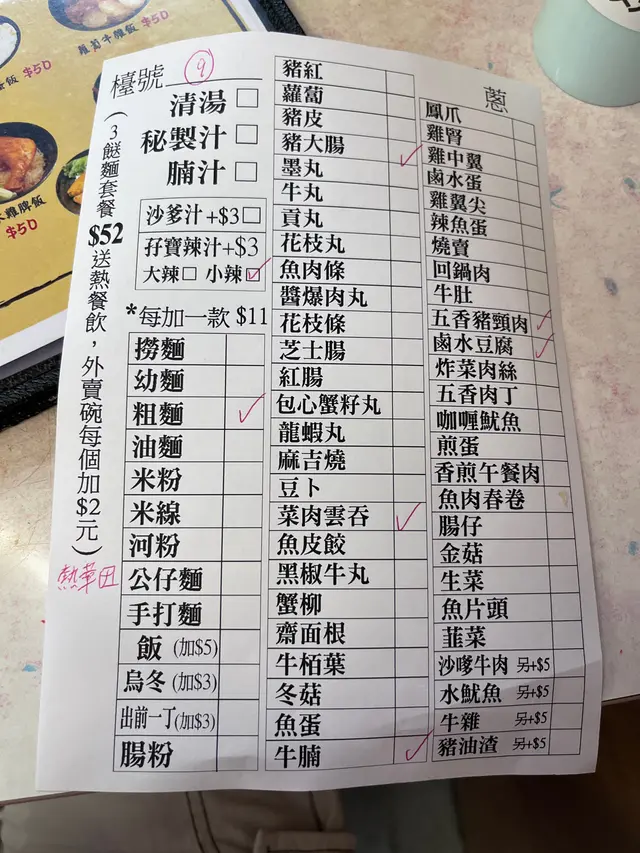 飯 $50
蘿蔔牛雜飯 $50
雞脾飯
$50
檯號 9
(3餸麵套餐 $52 送熱餐飲，外賣碗每個加$2元)
熱華田
清湯 □
秘製汁 □
腩汁 □
沙爹汁+$3□
孖寶辣汁+$3
大辣□ 小辣☑
*每加一款 $11
撈麵
幼麵
粗麵 ✓
油麵
米粉
米線
河粉
公仔麵
手打麵
飯 (加$5)
烏冬 (加$3)
出前一丁(加$3)
腸粉
豬紅
蘿蔔
豬皮
豬大腸 ✓
墨丸
牛丸
貢丸
花枝丸
魚肉條
醬爆肉丸
花枝條
芝士腸
紅腸
包心蟹籽丸
龍蝦丸
麻吉燒
豆卜
菜肉雲吞 ✓
魚皮餃
黑椒牛丸
蟹柳
齋面根
牛栢葉
冬菇
魚蛋
牛腩 ✓
蔥
鳳爪
雞腎
雞中翼
鹵水蛋
雞翼尖
辣魚蛋
燒賣
回鍋肉
牛肚
五香豬頸肉 ✓
鹵水豆腐 ✓
炸菜肉絲
五香肉丁
咖喱魷魚
煎蛋
香煎午餐肉
魚肉春卷
腸仔
金菇
生菜
魚片頭
韮菜
沙嗲牛肉 另+$5
水魷魚 另+$5
牛雜 另+$5
豬油渣 另+$5